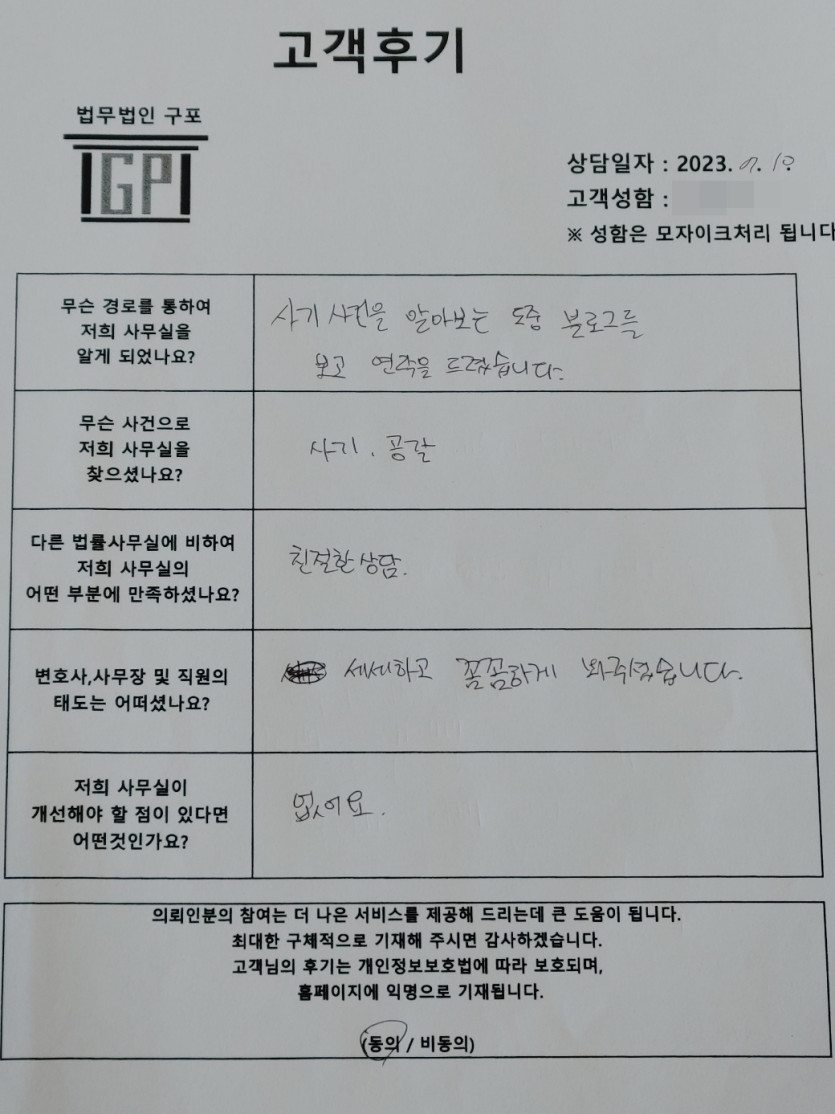 고객후기
법무법인 구포
GP
상담일자 : 2023. 7. 10.
고객성함 :
※ 성함은 모자이크처리 됩니다
무슨 경로를 통하여
저희 사무실을
알게 되었나요?
사기 사건을 알아보는 도중 블로그를
보고 연락을 드렸습니다.
무슨 사건으로
저희 사무실을
찾으셨나요?
사기. 공갈
다른 법률사무실에 비하여
저희 사무실의
어떤 부분에 만족하셨나요?
친절한 상담.
변호사,사무장 및 직원의
태도는 어떠셨나요?
세세하고 꼼꼼하게 봐주셨습니다.
저희 사무실이
개선해야 할 점이 있다면
어떤것인가요?
없어요.
의뢰인분의 참여는 더 나은 서비스를 제공해 드리는데 큰 도움이 됩니다.
최대한 구체적으로 기재해 주시면 감사하겠습니다.
고객님의 후기는 개인정보보호법에 따라 보호되며,
홈페이지에 익명으로 기재됩니다.
(동의 / 비동의)